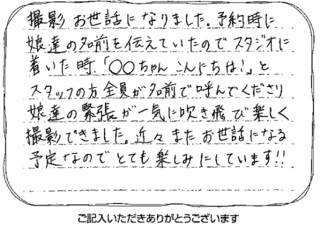 撮影お世話になりました。予約時に
娘達の名前を伝えていたのでスタジオに
着いた時、「〇〇ちゃんこんにちは!」と
スタッフの方全員が名前で呼んでくださり
娘達の緊張が一気に吹き飛び楽しく
撮影できました。近々またお世話になる
予定なのでとても楽しみにしています!!
ご記入いただきありがとうございます